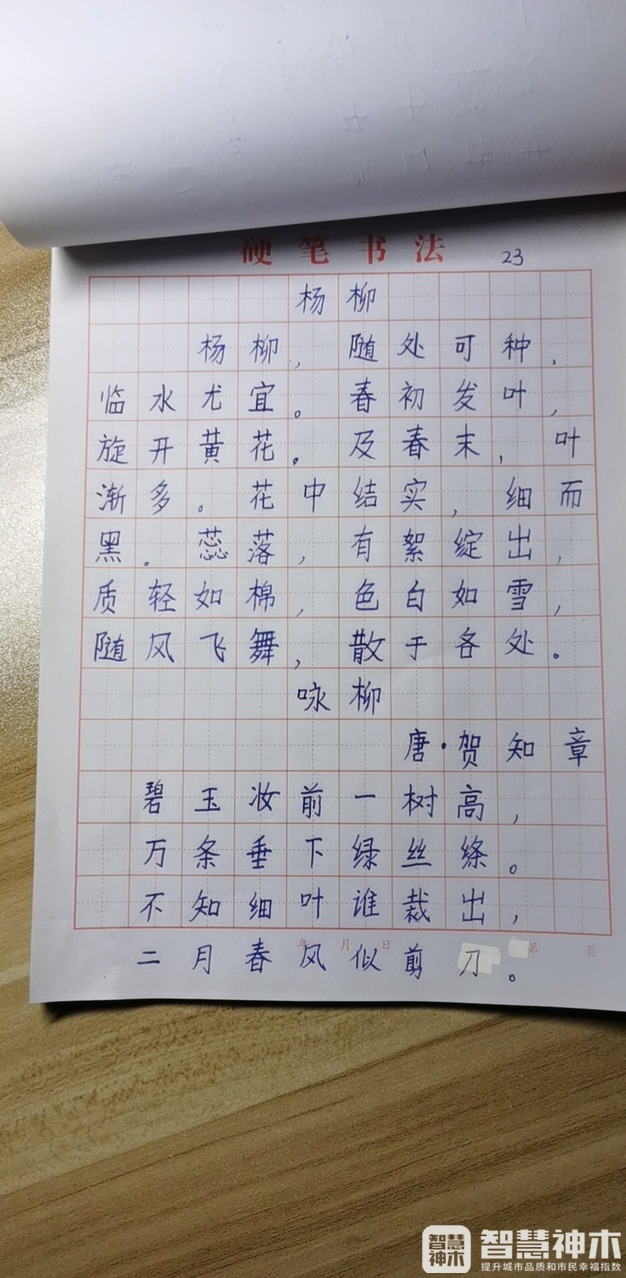 硬笔书法
23
杨柳
杨柳,随处可种,
临水尤宜。春初发叶,
旋开黄花。及春末,叶
渐多。花中结实,细而
黑。蕊落,有絮绽出,
质轻如棉,色白如雪,
随风飞舞,散于各处。
咏柳
唐·贺知章
碧玉妆前一树高,
万条垂下绿丝绦。
不知细叶谁裁出,
年 月 日 第 页
二月春风似剪刀。
智慧神木
提升城市品质和市民幸福指数